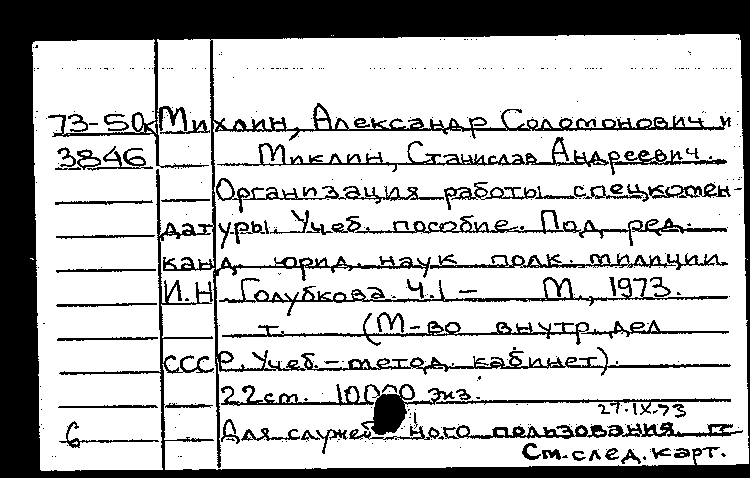 73-50к Михлин, Александр Соломонович и
3846 Миклин, Станислав Андреевич.
Организация работы спецкомен-
датуры. Учеб. пособие. Под ред.
канд. юрид. наук полк. милиции
И.Н Голубкова. Ч.1 – М., 1973.
т. (М-во внутр. дел
СССР. Учеб.-метод. кабинет).
22см. 10000 экз.
27.IX.73
6 Для служебного пользования.
См. след. карт.